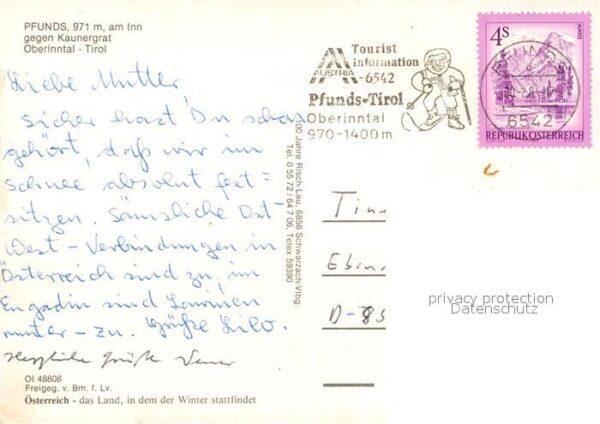 PFUNDS, 971 m, am Inn
gegen Kaunergrat
Oberinntal - Tirol
Liebe Mutter,
Sicher hast Du schon
gehört, daß wir im
Schnee absolut fest-
sitzen. Sämtliche Ost-
West-Verbindungen in
Österreich sind zu, im
Engadin sind Lawinen
runter - zu. Grüße Lilo.
Herzliche Grüße
OI 48808
Freigeg. v. Bm. f. Lv.
Österreich - das Land, in dem der Winter stattfindet
100 Jahre Risch-Lau, 6858 Schwarzach-Vlbg.
Tel. 0 55 72 / 64 7 06, Telex 59390
AUSTRIA
Tourist
information
-6542
Pfunds-Tirol
Oberinntal
970-1400m
4S
ALMSEE
PFUNDS
6542
REPUBLIK ÖSTERREICH
Tin
Eben
D-85
privacy protection
Datenschutz